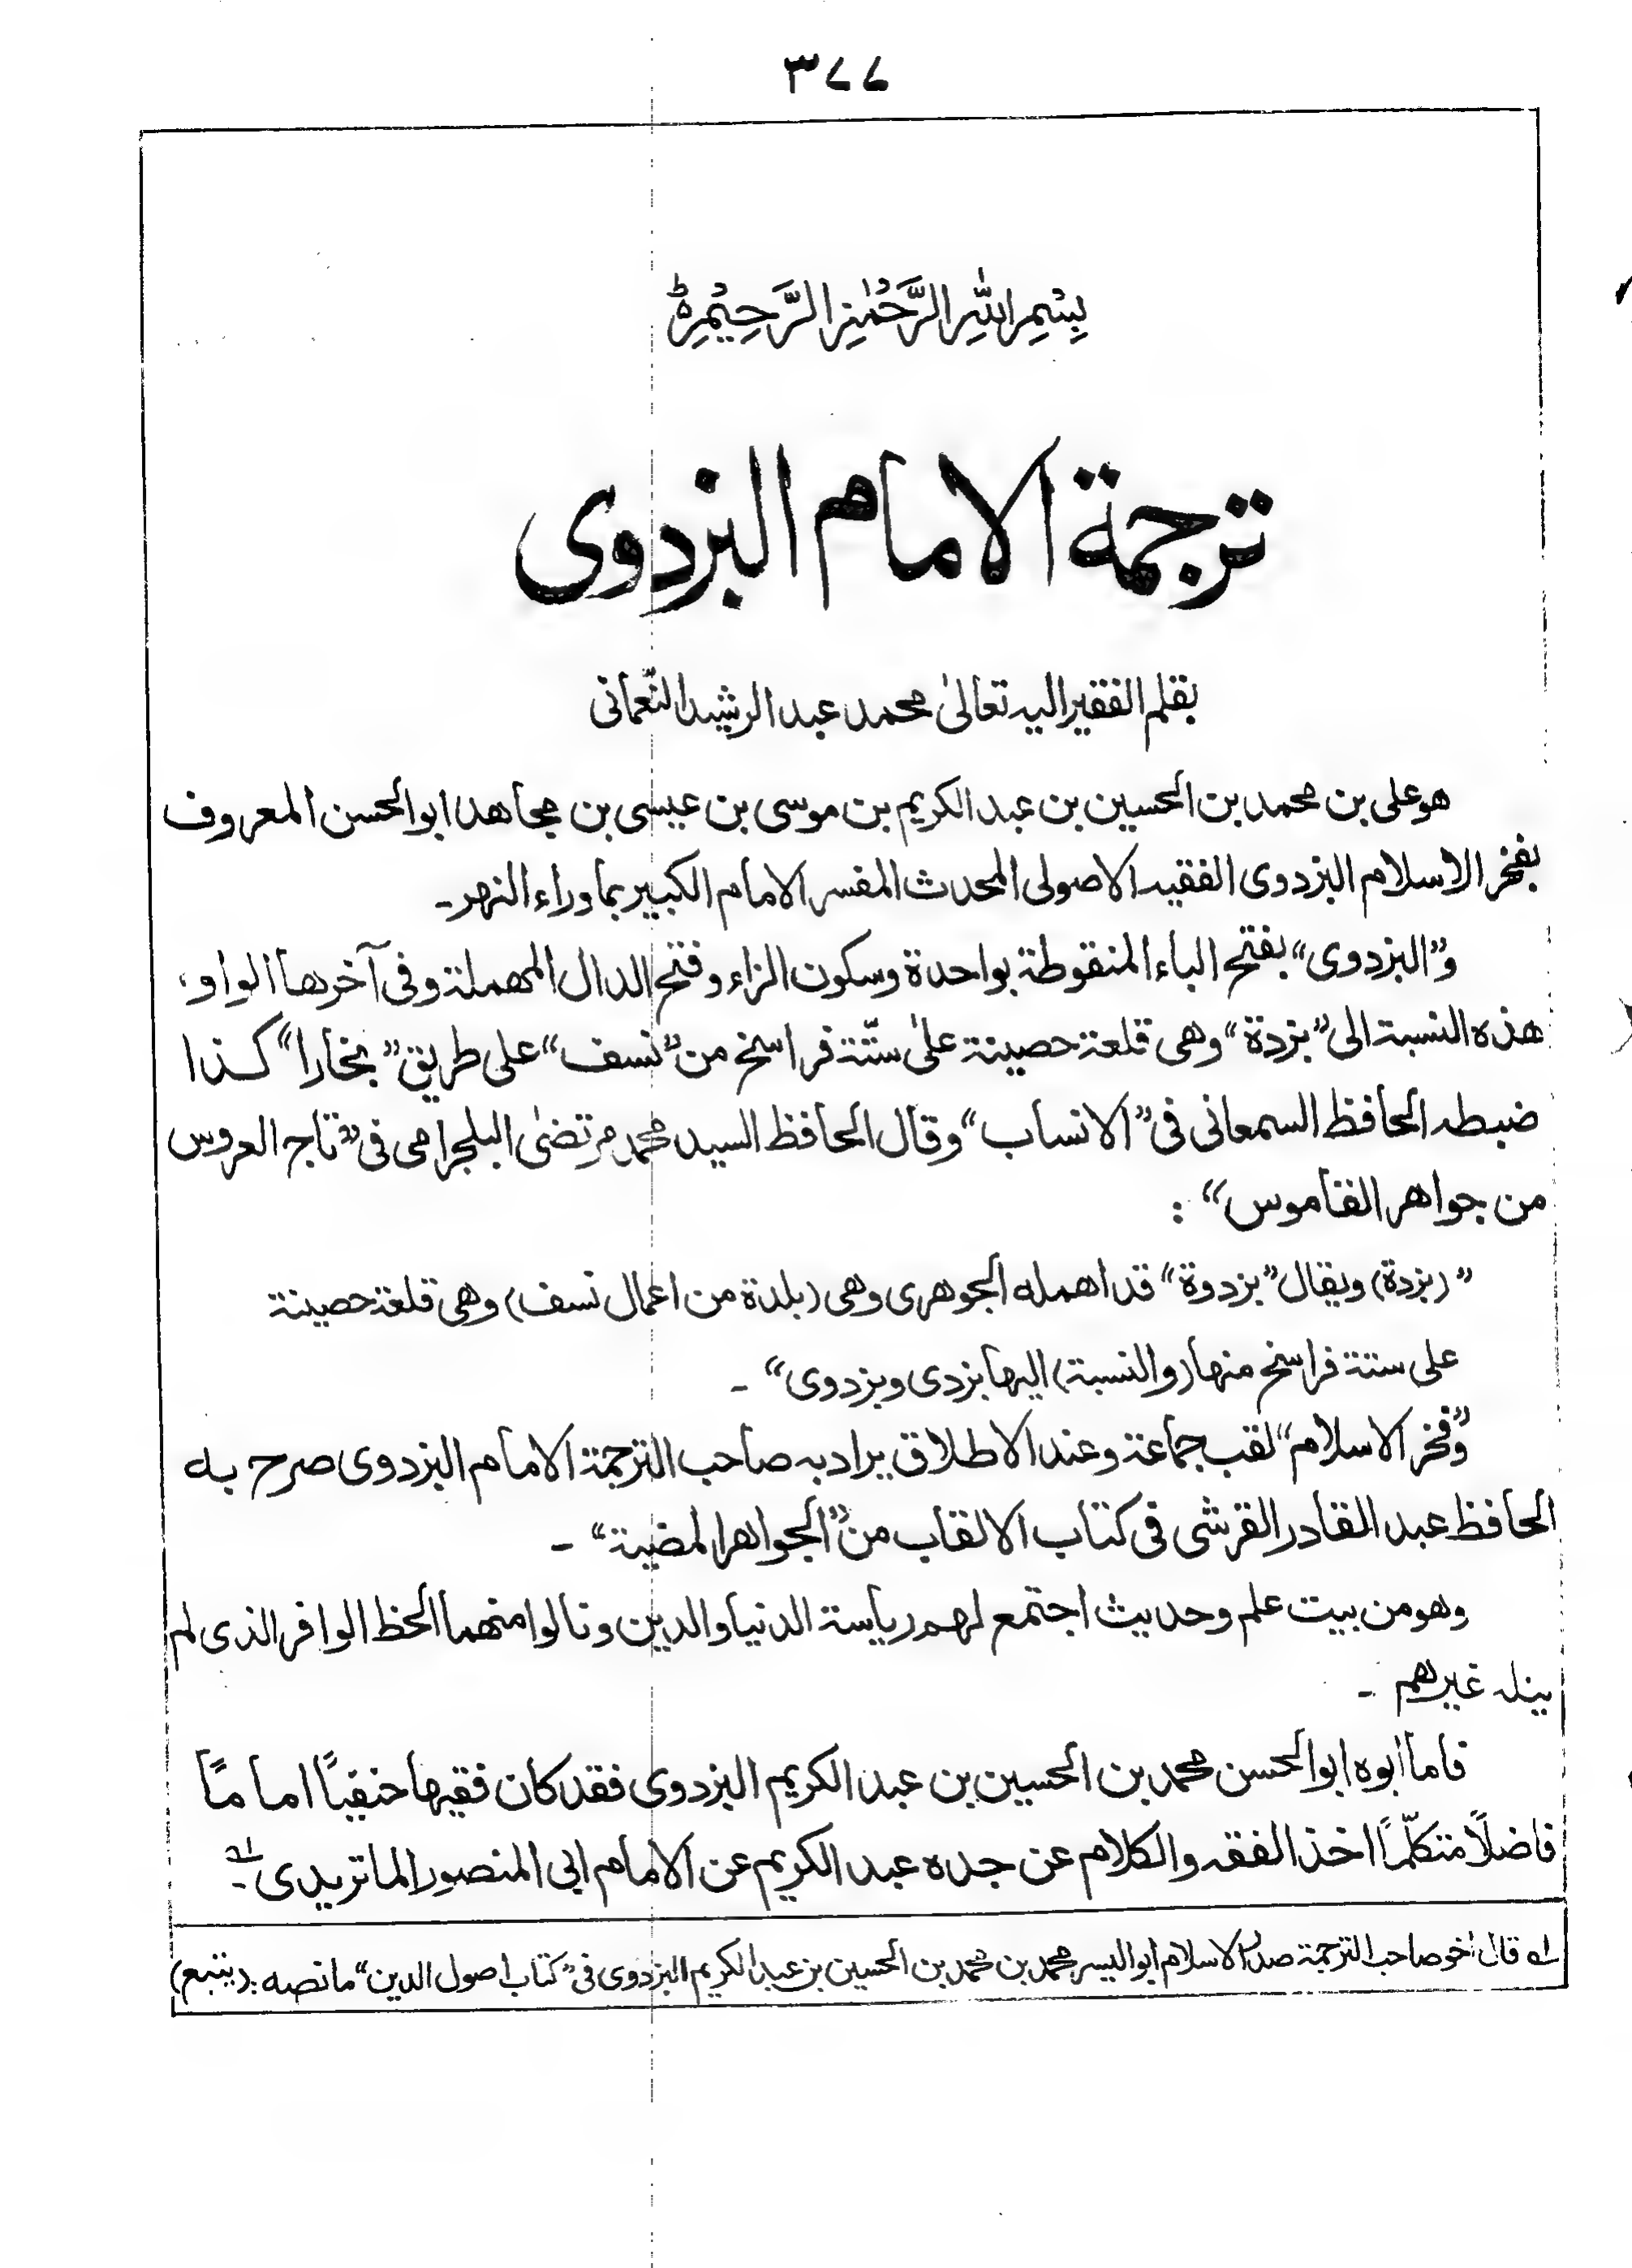 ٣٧٧
بِسْمِ اللهِ الرَّحْمٰنِ الرَّحِيْمِ ط
ترجمة الامام البزدوى
بقلم الفقير اليه تعالىٰ محمد عبد الرشيد النّعمانى
هو على بن محمد بن الحسين بن عبد الكريم بن موسى بن عيسى بن مجاهد ابو الحسن المعروف
بفخر الاسلام البزدوى الفقيه الاصولى المحدث المفسر الامام الكبير بما وراء النهر ـ
و”البزدوى“ بفتح الباء المنقوطة بواحدة وسكون الزاء وفتح الدال المهملة وفى آخرها الواو،
هذه النسبة الى ”بزدة“ وهى قلعة حصينة علىٰ ستّة فراسخ من ”نسف“ على طريق ”بخارا“ كذا
ضبطه الحافظ السمعانى فى ”الانساب“ وقال الحافظ السيد محمد مرتضىٰ البلجرامى فى ”تاج العروس
من جواهر القاموس“ :
”(بزدة) ويقال ”بزدوة“ قد اهمله الجوهرى وهى (بلدة من اعمال نسف) وهى قلعة حصينة
على ستة فراسخ منها (والنسبة) اليها بزدى وبزدوى“ ـ
و”فخر الاسلام“ لقب جماعة وعند الاطلاق يراد به صاحب الترجمة الامام البزدوى صرح به
الحافظ عبد القادر القرشى فى كتاب الالقاب من ”الجواهر المضية“ ـ
وهو من بيت علم وحديث اجتمع لهم رياسة الدنيا والدين ونالوا منهما الحظ الوافر الذى لم
ينله غيرهم ـ
فاما أبوه ابو الحسن محمد بن الحسين بن عبد الكريم البزدوى فقد كان فقيها حنفياً اماماً
فاضلاً متكلّماً اخذ الفقه والكلام عن جده عبد الكريم عن الامام ابى المنصور الماتريدى ـ لـه
لـه قال اخو صاحب الترجمة صدر الاسلام ابو اليسر محمد بن محمد بن الحسين بن عبد الكريم البزدوى فى ”كتاب اصول الدين“ ما نصه :ـ (يتبع)